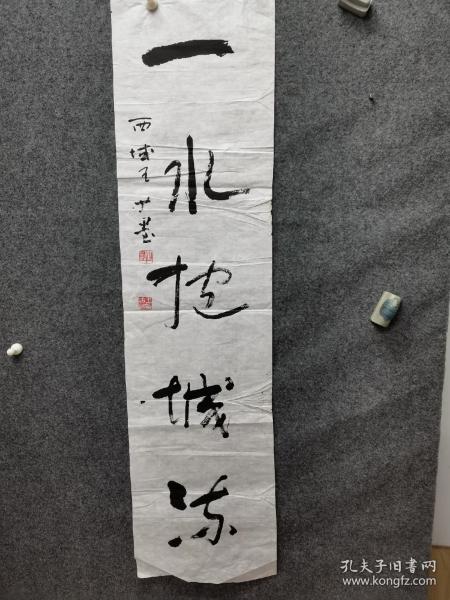 一水抱城流
西域王少墨
孔夫子旧书网
www.kongfz.com